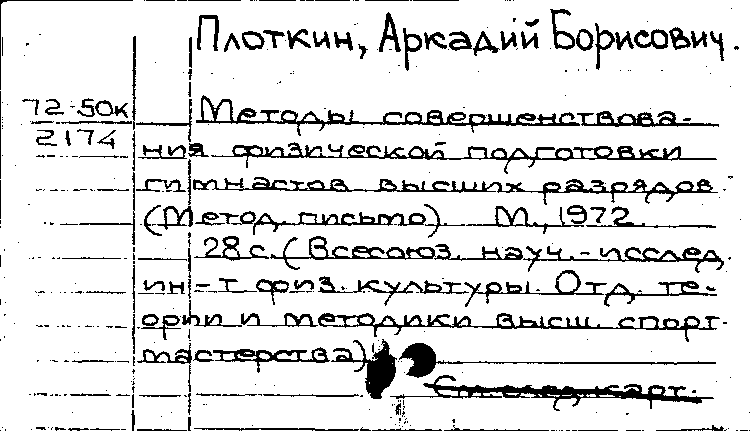 Плоткин, Аркадий Борисович.
72-50к
2174
Методы совершенствова-
ния физической подготовки
гимнастов высших разрядов.
(Метод. письмо). М., 1972.
28 с. (Всесоюз. науч.-исслед.
ин-т физ. культуры. Отд. те-
ории и методики высш. спорт.
мастерства)
См. след. карт.